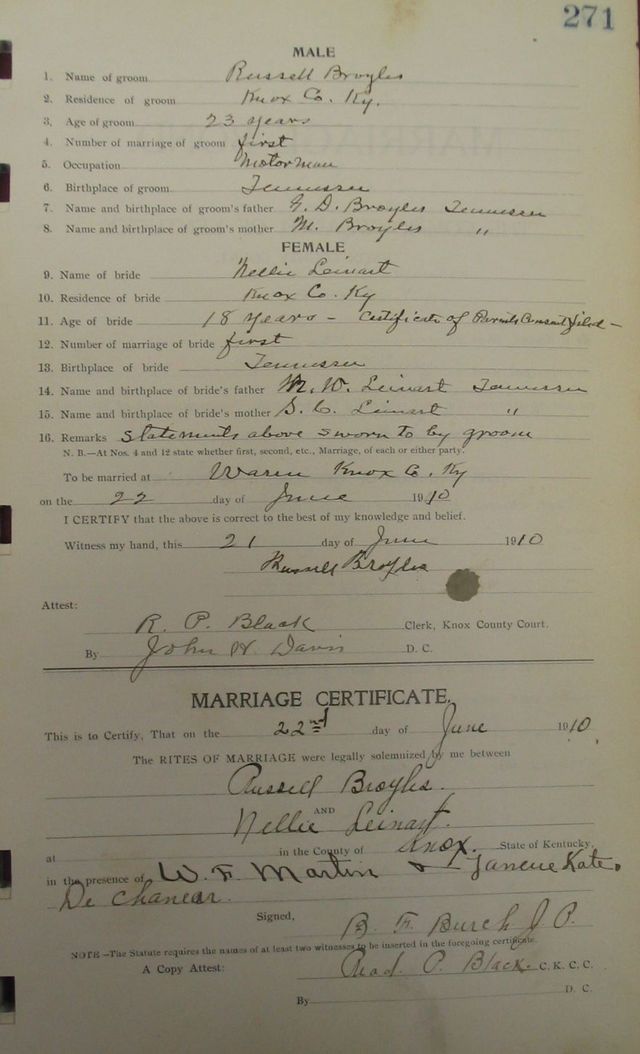 271
MALE
1. Name of groom Russell Broyles
2. Residence of groom Knox Co. Ky.
3. Age of groom 23 years
4. Number of marriage of groom first
5. Occupation Motorman
6. Birthplace of groom Tennessee
7. Name and birthplace of groom's father G. D. Broyles Tennessee
8. Name and birthplace of groom's mother M. Broyles "
FEMALE
9. Name of bride Nellie Leinart
10. Residence of bride Knox Co. Ky
11. Age of bride 18 years – Certificate of Parents Consent filed –
12. Number of marriage of bride first
13. Birthplace of bride Tennessee
14. Name and birthplace of bride's father M. W. Leinart Tennessee
15. Name and birthplace of bride's mother S. C. Leinart "
16. Remarks Statements above sworn to by groom
N. B.—At Nos. 4 and 12 state whether first, second, etc., Marriage, of each or either party.
To be married at Waren Knox Co. Ky
on the 22 day of June 1910
I CERTIFY that the above is correct to the best of my knowledge and belief.
Witness my hand, this 21 day of June 1910
Russell Broyles
Attest:
R. P. Black Clerk, Knox County Court.
By John H. Davis D. C.
MARRIAGE CERTIFICATE.
This is to Certify, That on the 22nd day of June 1910
The RITES OF MARRIAGE were legally solemnized by me between
Russell Broyles.
AND
Nellie Leinart.
at in the County of Knox. State of Kentucky,
in the presence of W. F. Martin & Kate
De
Signed, B. F. Burch J. P.
NOTE—The Statute requires the names of at least two witnesses to be inserted in the foregoing certificate.
A Copy Attest: Read. P. Black C. K. C. C.
By D. C.